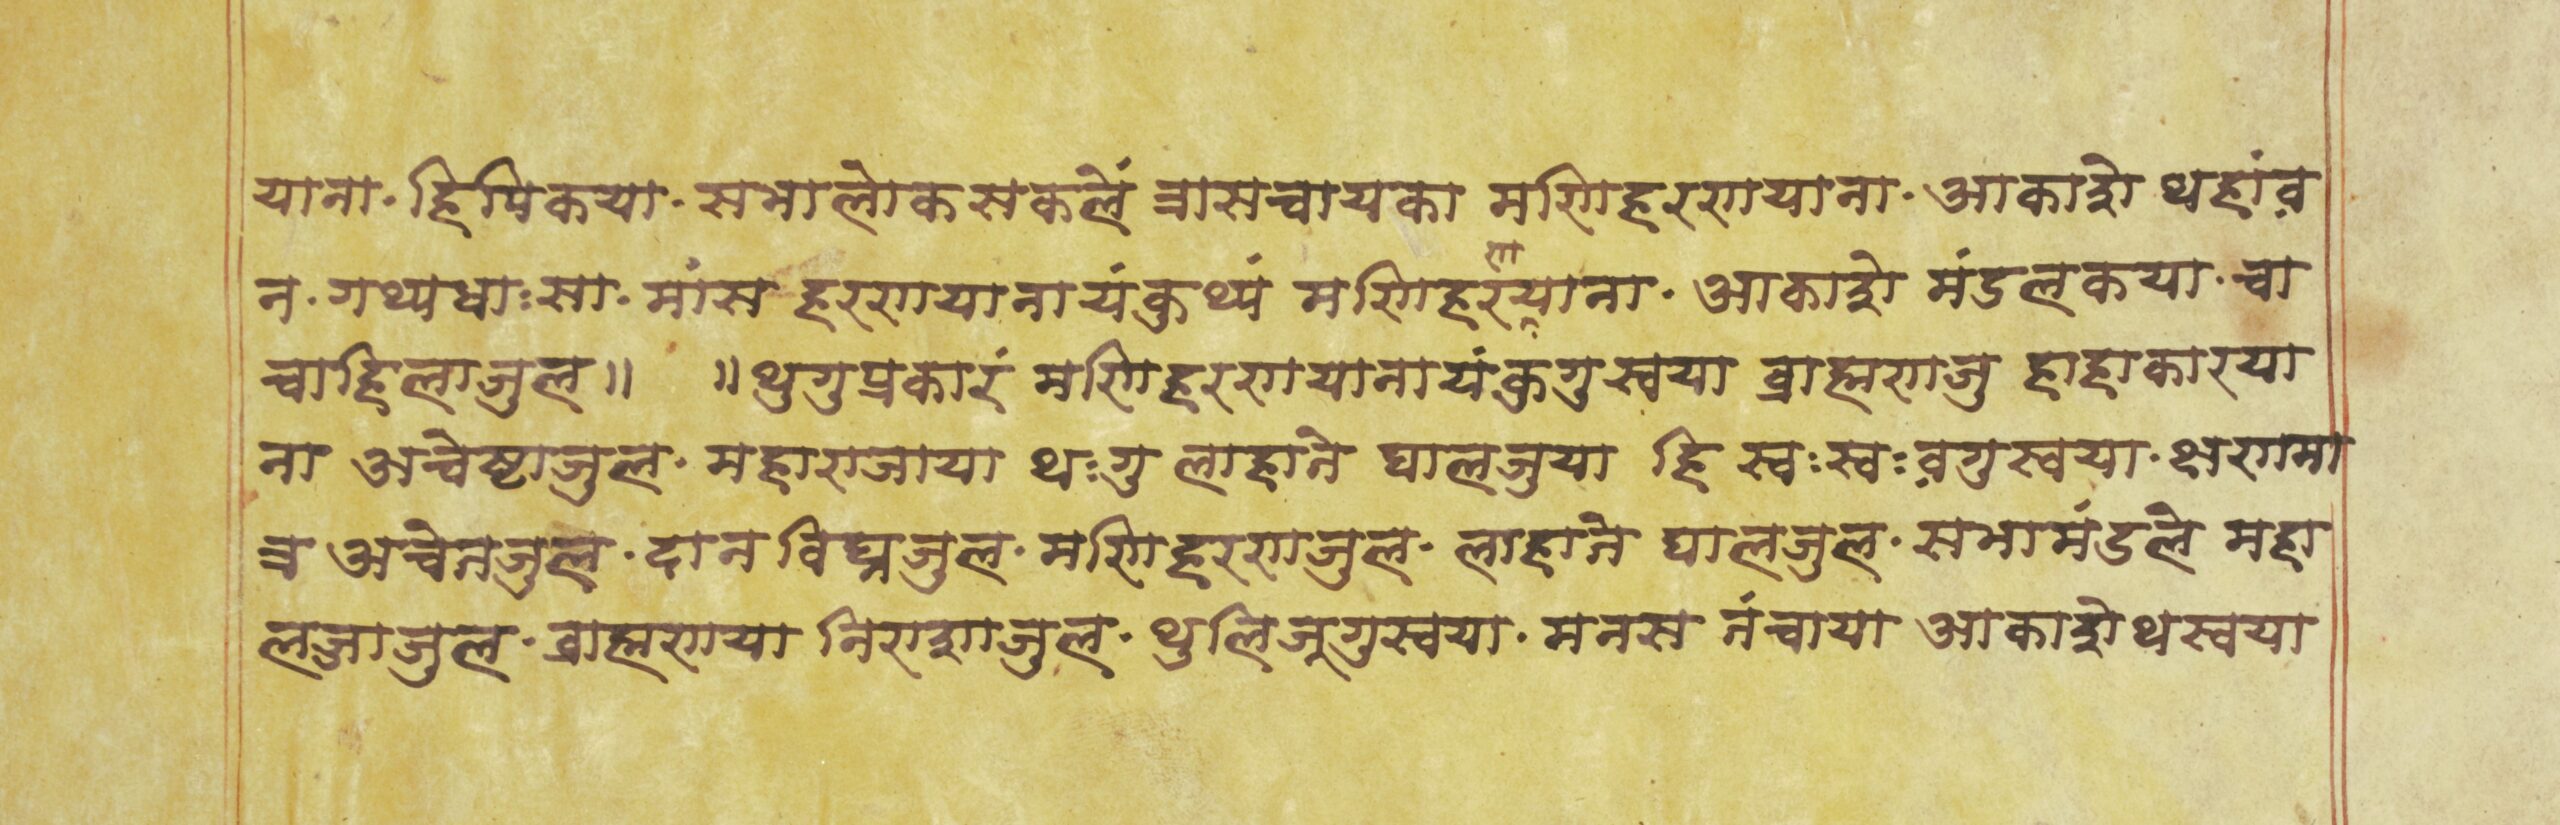 याना · हिपिकया · सभालोकसकलें त्रासचायका मणिहरणयाना · आकाशे थहांव़
न · गथ्यधाःसा · मांस हरणयानायंकुथ्यं मणिहरणयाना · आकाशे मंडलकया · चा
चाहिलाजुल ॥ ॥ थुगुप्रकारं मणिहरणयानायंकुगुस्वया ब्राह्मणजु हाहाकारया
ना अचेष्टाजुल · महाराजाया थःगु लाहाने घालजुया हि स्वःस्वःव़गुस्वया · क्षणमा
त्र अचेतजुल · दान विघ्नजुल · मणिहरणजुल · लाहाने घालजुल · सभामंडले महा
लज्जाजुल · ब्राह्मणया निराशजुल · थुलिजूगुस्वया · मनस नंचाया आकाशे थस्वया